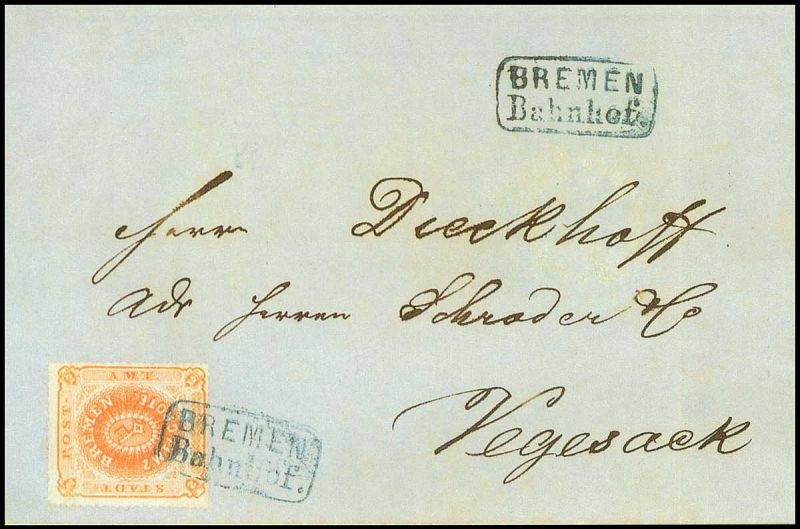 BREMEN
Bahnhof.
Herrn Dieckhoff
Adr Herren Schröder & Co
Vegesack
AMT
POST
STADT
BREMEN
BREMEN
Bahnhof.